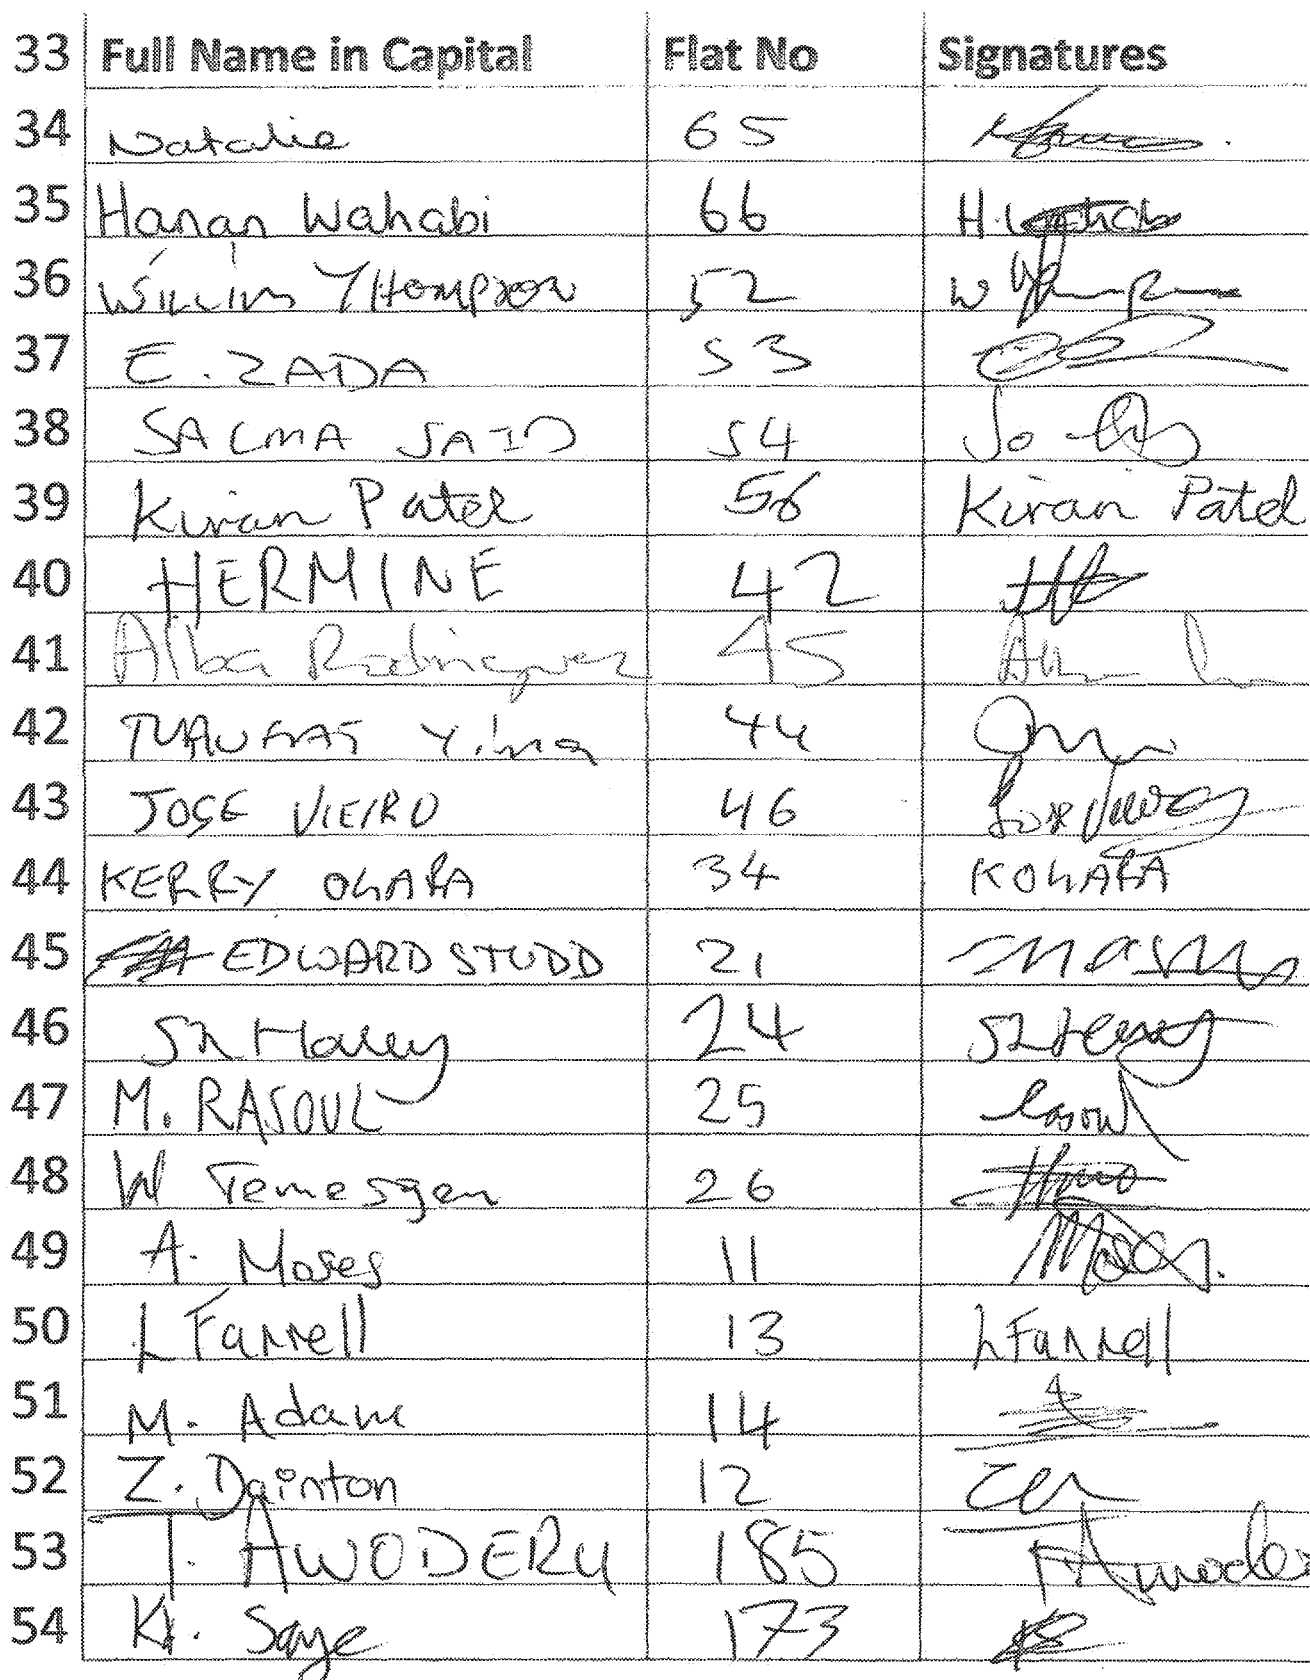 33 Full Name in Capital Flat No Signatures
34 Natalie 65
35 Hanan Wahabi 66 H. Wahabi
36 Thompson 52 W
37 E. ZADA 53
38 SALMA SAID 54
39 Kiran Patel 56 Kiran Patel
40 HERMINE 42
41 Alba Rodriguez 45
42 44
43 JOSE VIEIRO 46
44 KERRY OHARA 34 KOHARA
45 EDWARD STUDD 21
46 24
47 M. RASOUL 25 Rasoul
48 W Temesgen 26
49 A. Moses 11
50 L Farrell 13 L Farrell
51 M. Adam 14
52 Z. Dainton 12
53 T. AWODERU 185
54 K. Saye 173